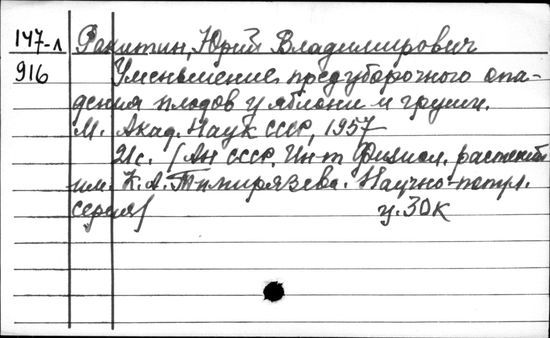 147-л Ракитин, Юрий Владимирович
916 Уменьшение предуборочного опа-
дения плодов у яблони и груши.
М. Акад. Наук СССР, 1957
21с. (Ан СССР. Ин-т физиол. растений
им. К.А. Тимирязева. Научно-попул.
серия) ц. 30к